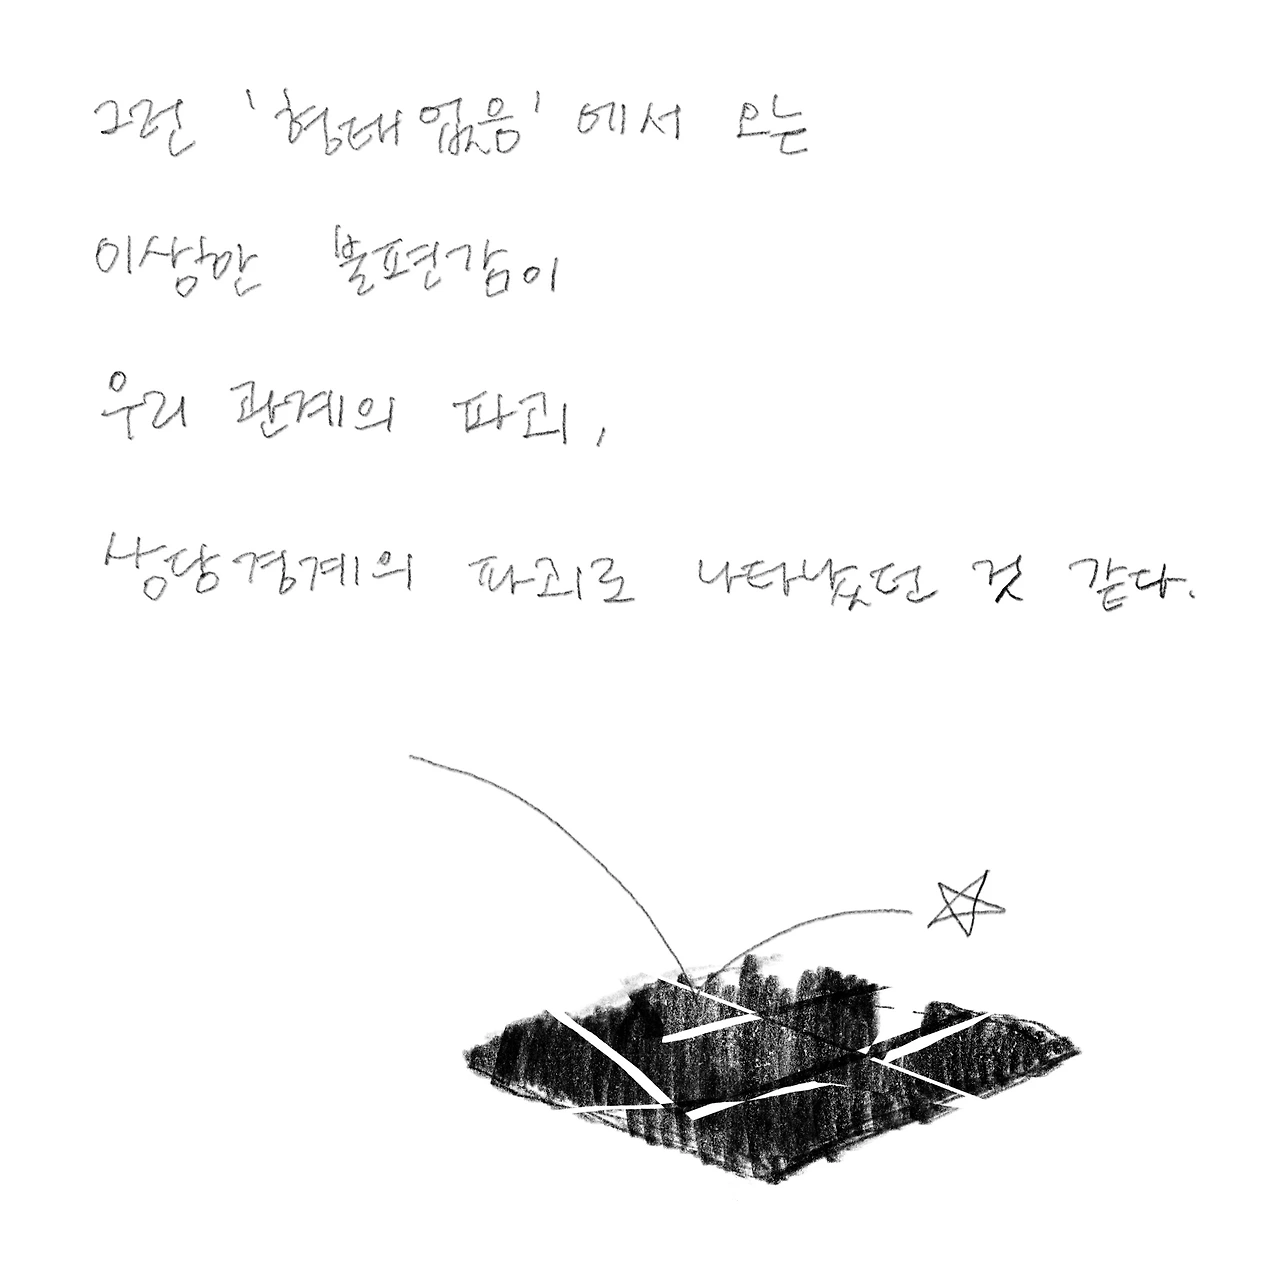 그런 '형태없음'에서 오는
이상한 불편감이
우리 관계의 파괴,
상담경계의 파괴로 나타났던 것 같다.